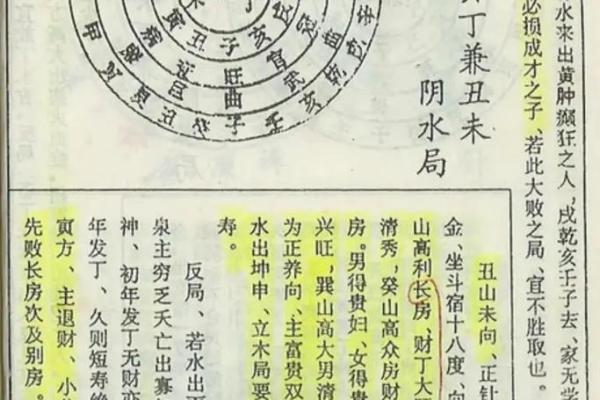 水来出黄肿癫狂之人，戌乾亥壬子去、家无学
必损成才之子、若此大败之局、宜不胜取也。
丁兼丑未
阴水局
寅丑子亥戌
旺官冠
曲武
甲
子壬亥乾
丑山未向、正针
金、坐斗宿十八度、向
山高利长房、财丁大
清秀，癸山高众房财
房。男得贵妇、女得贵
兴旺，巽山高大男清
为正养向、主富贵双
水出坤申、立木局要
寿。
反局、若水出
泉主穷乏夭亡出寡
神、初年发丁无财
年发丁、久则短寿绝
寅方、主退财、小
先败长房次及别房。